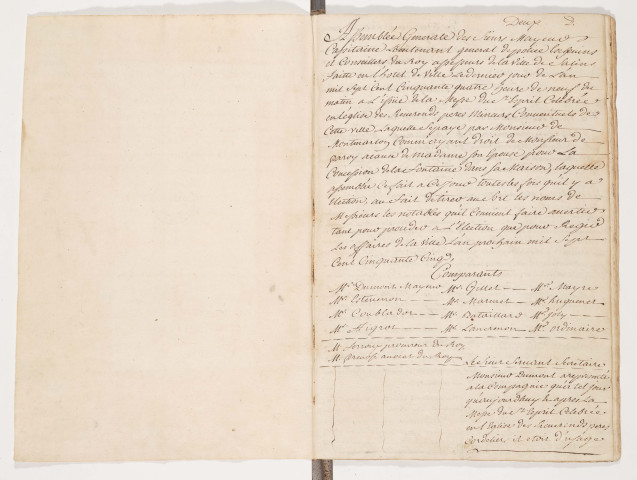 Deux
Assemblée Generalle des sieurs Mayeur
Capitaine Lieutenant general de police Echevins
et Conseillers du Roy assesseurs de la ville de Salins
faitte en l'hotel de Ville Le dernier jour de L'an
mil sept cent Cinquante quatre heure de neuf du
matin a L'issüe de la Messe du st Esprit Celebrée
en l'Eglise des Reverends peres Mineurs Conventuels de
Cette ville, Laquelle se paye par Monsieur de
Montmarlon Comme ayant droit de Monsieur de
a cause de madame son Epouse, pour La
Concession de La fontaine dans sa Maison, laquelle
assemblée se fait a ce jour toutes les fois qu'il y a
Election, au fait de tirer au sort les noms de
Messieurs les notables qu'il Convient faire avertir
tant pour proceder a L'Election que pour Regir
Les affaires de la Ville L'an prochain mil sept
Cent Cinquante Cinq
Comparants
Mr Dumont Mayeur Mr Gillet Mr Mayre
Mr Mr Marmet Mr huguenet
Mr Coublador Mr Bataillard Mr Joly
Mr Mr Mr ordinaire
M procureur du Roy
M avocat du Roy
Le sieur Secretaire
Monsieur Dumont a representé
a la Compagnie que cet jour
qu'aujourd'huy apres La
Messe du st Esprit Celebrée
en l'Eglise des Reverends peres
Cordeliers, il etoit d'usage